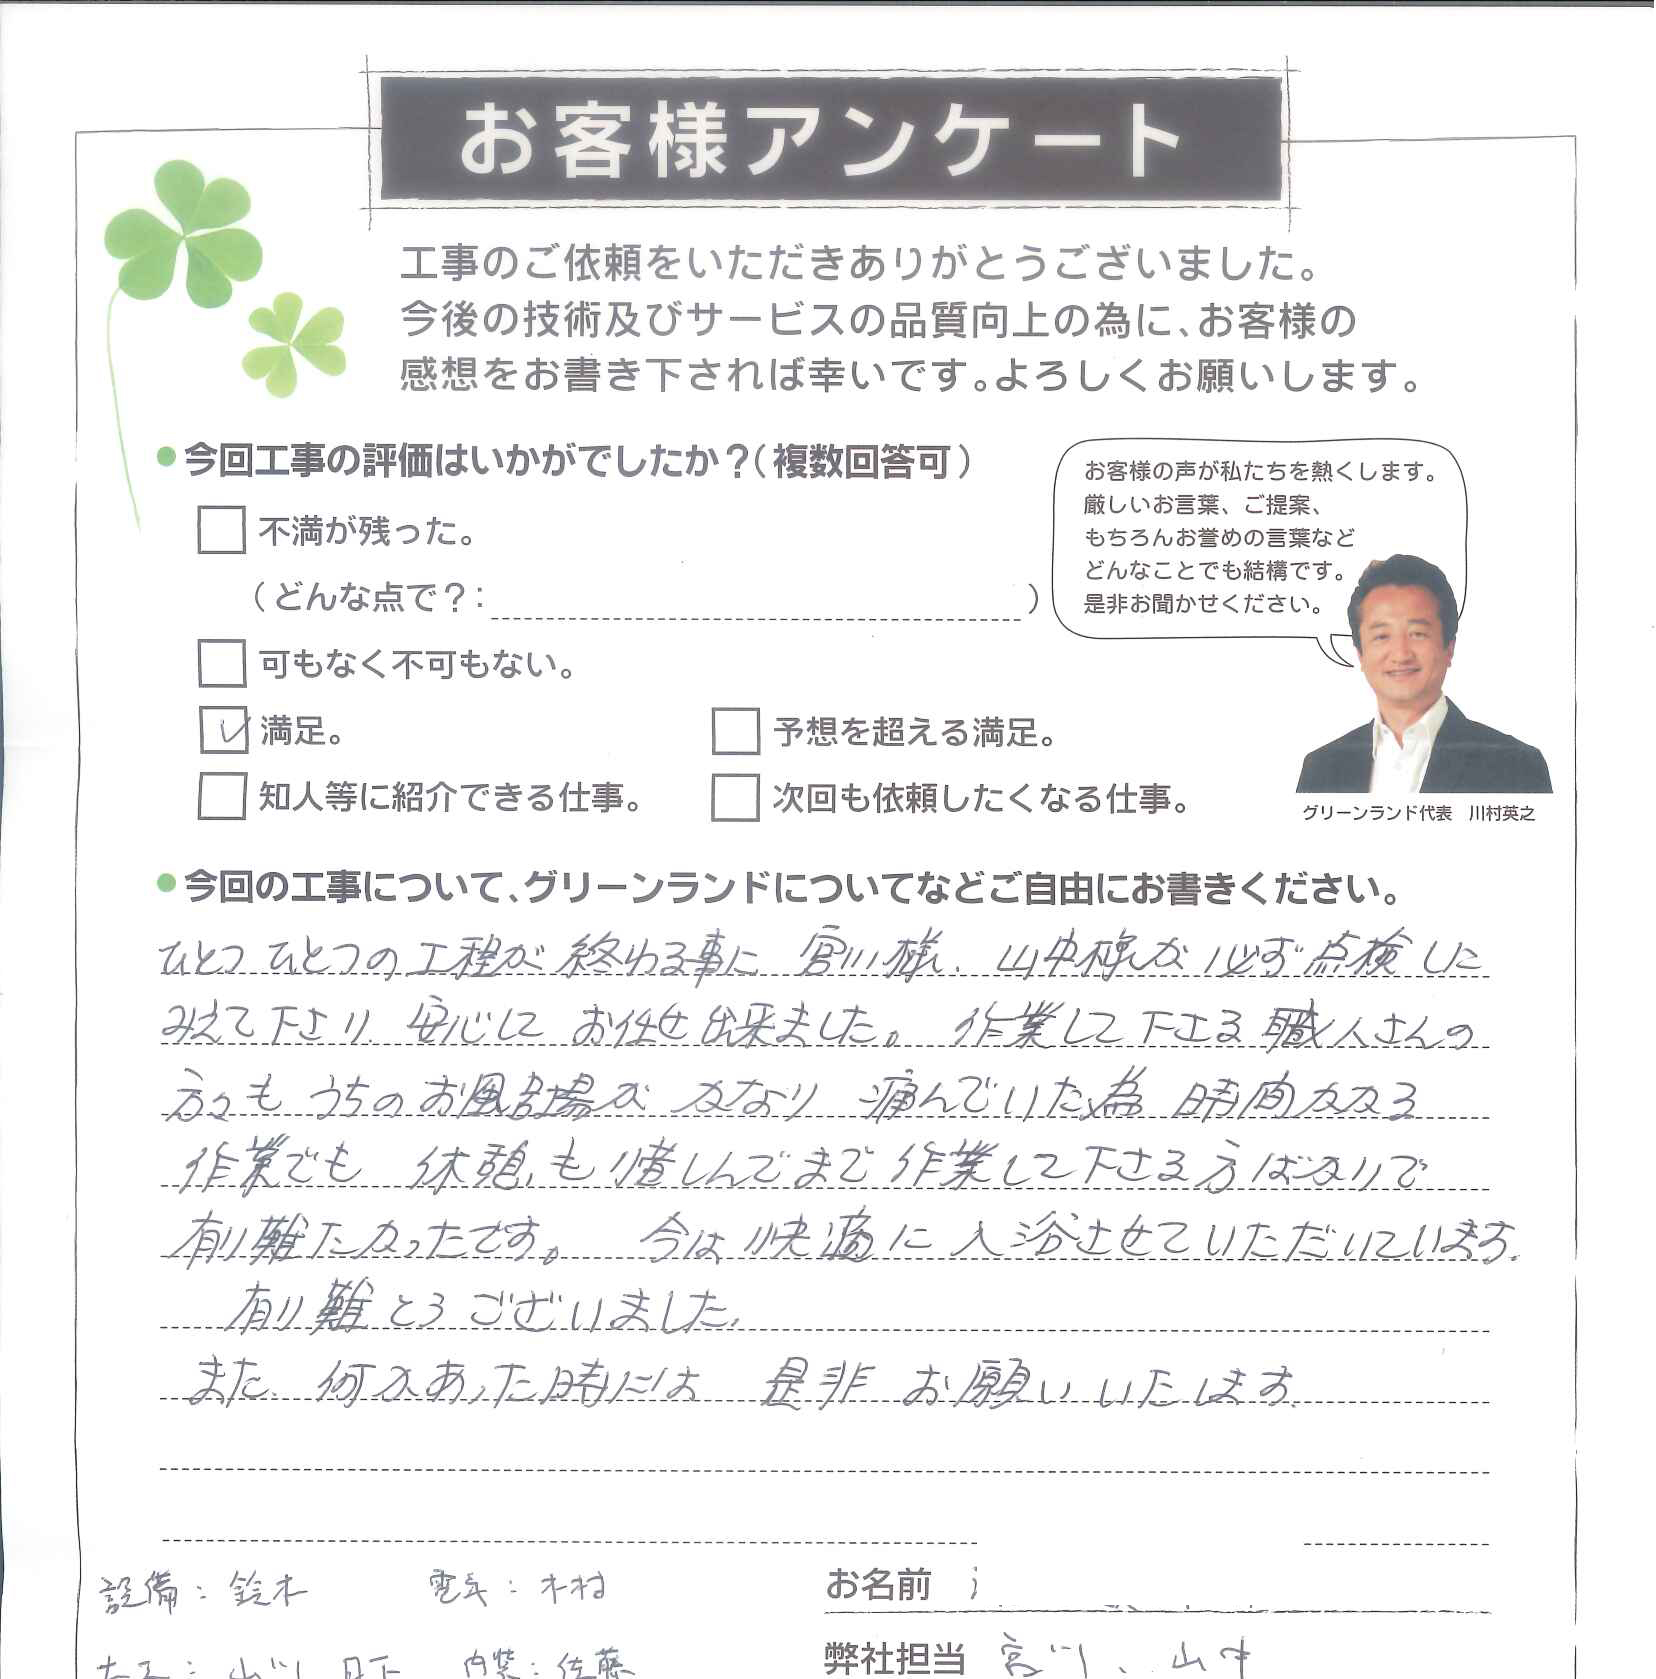 お客様アンケート
工事のご依頼をいただきありがとうございました。
今後の技術及びサービスの品質向上の為に、お客様の
感想をお書き下されば幸いです。よろしくお願いします。
今回工事の評価はいかがでしたか？（複数回答可）
不満が残った。
（どんな点で？：　）
可もなく不可もない。
満足。
予想を超える満足。
知人等に紹介できる仕事。
次回も依頼したくなる仕事。
お客様の声が私たちを熱くします。
厳しいお言葉、ご提案、
もちろんお誉めの言葉など
どんなことでも結構です。
是非お聞かせください。
グリーンランド代表　川村英之
今回の工事について、グリーンランドについてなどご自由にお書きください。
ひとつひとつの工程が終わる事に 宮川様、山中様が必ず点検しに
みえて下さり、安心して お任せ出来ました。 作業して下さる職人さんの
方々も うちのお風呂場が かなり 痛んでいた為 時間かかる
作業でも 休憩も惜しんでまで作業して下さる方ばかりで
有り難たかったです。 今は快適に入浴させていただいています。
有り難とうございました。
また、何かあった時には 是非 お願いいたします。
設備：鈴木　電気：木村
お名前
大工：　日下　内装：佐藤
弊社担当　宮川、山中